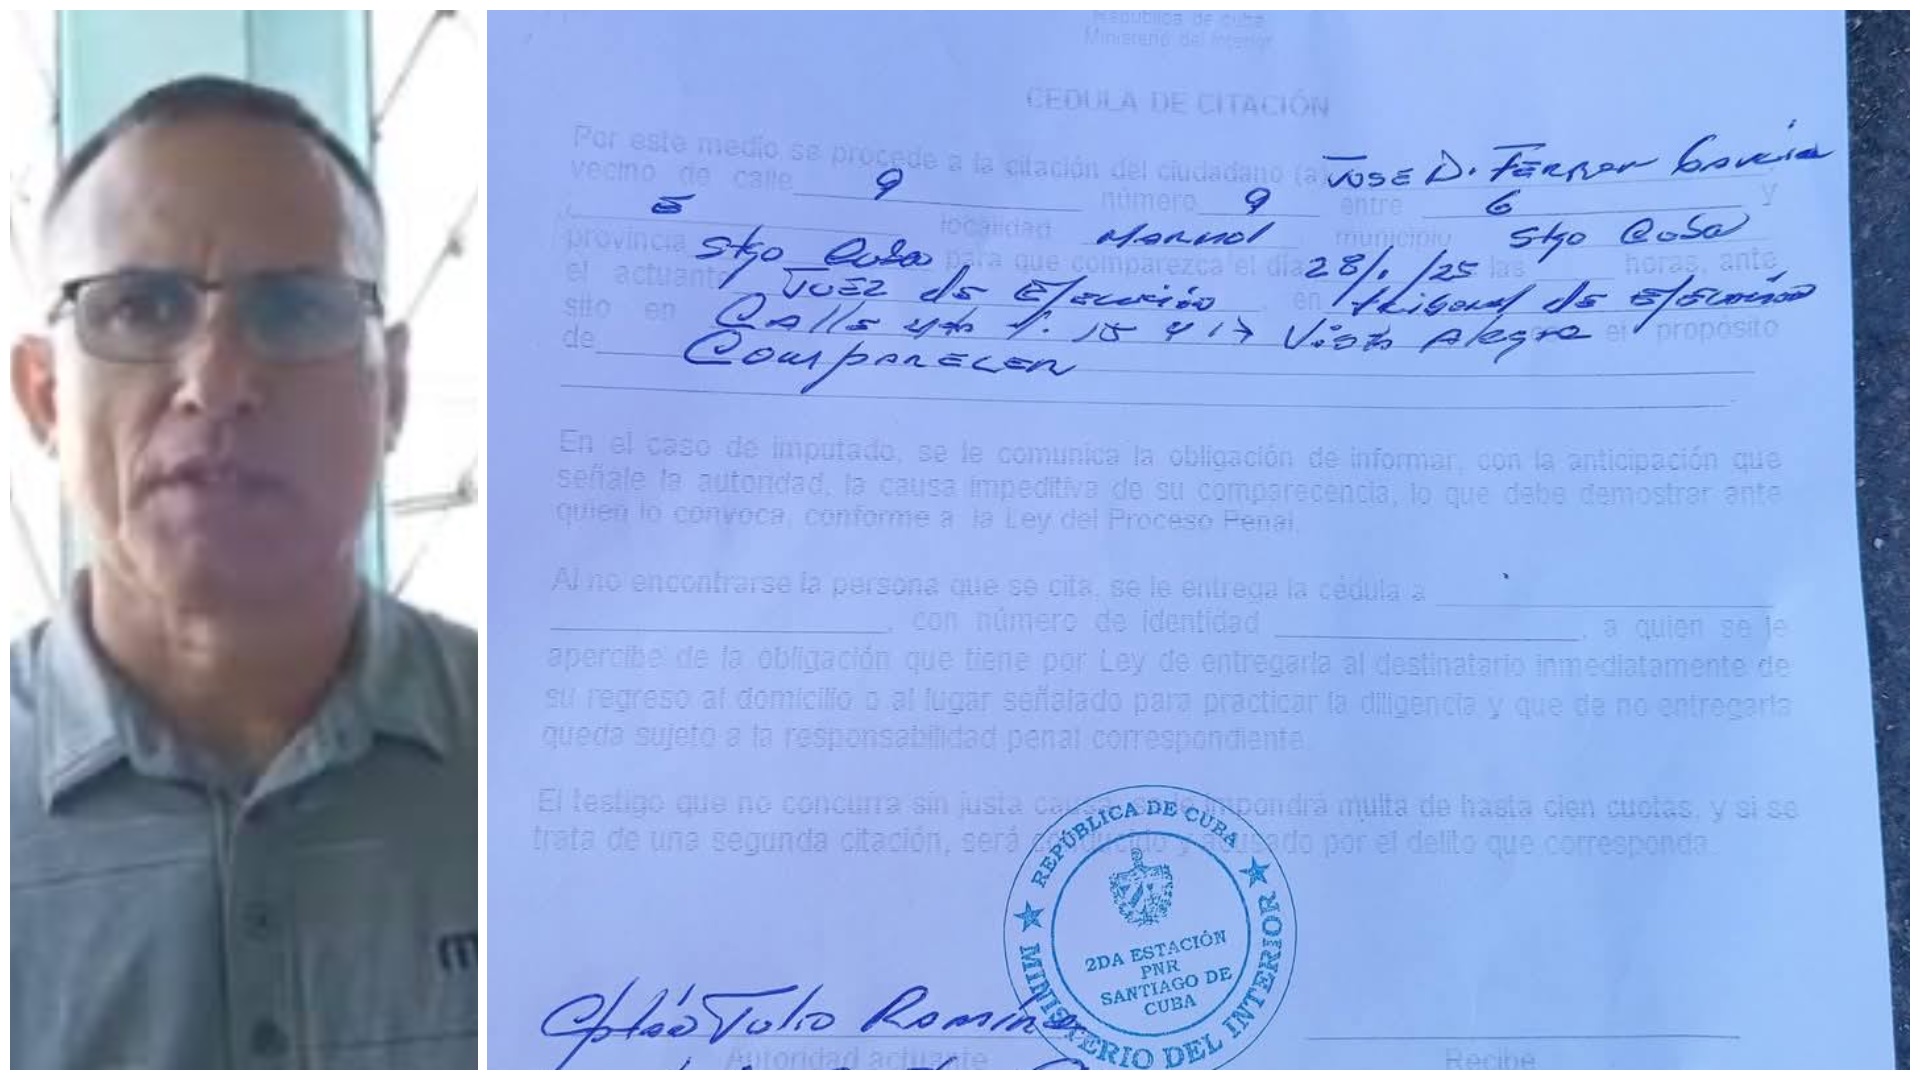 República de Cuba
Ministerio del Interior
CEDULA DE CITACIÓN
Por este medio se procede a la citación del ciudadano (a) Jose D. Ferrer Garcia
vecino de calle 9 número 9 entre 6 y
5 localidad Marmol municipio Stgo Cuba
provincia Stgo Cuba para que comparezca el día 28/ /25 las horas, ante
el actuante Juez de Ejecución, en tribunal de Ejecución
sito en Calle 4ta 15 y 17 Vista Alegre el propósito
de Comparecer
En el caso de imputado, se le comunica la obligación de informar, con la anticipación que
señale la autoridad, la causa impeditiva de su comparecencia, lo que debe demostrar ante
quien lo convoca, conforme a la Ley del Proceso Penal.
Al no encontrarse la persona que se cita, se le entrega la cédula a
, con número de identidad , a quien se le
apercibe de la obligación que tiene por Ley de entregarla al destinatario inmediatamente de
su regreso al domicilio o al lugar señalado para practicar la diligencia y que de no entregarla
queda sujeto a la responsabilidad penal correspondiente.
El testigo que no concurra sin justa causa, se le impondrá multa de hasta cien cuotas, y si se
trata de una segunda citación, será conducido y acusado por el delito que corresponda.
REPÚBLICA DE CUBA
2DA ESTACIÓN
PNR
SANTIAGO DE
CUBA
MINISTERIO DEL INTERIOR
Tulio Ramírez
Autoridad actuante Recibe